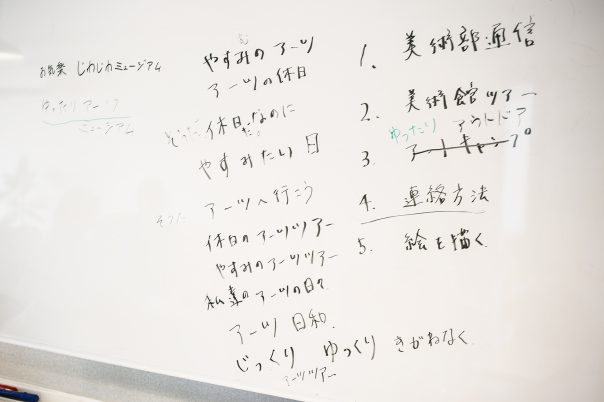 お気楽 じわじわミュージアム
ゆったり アーツ
ミュージアム
やすみのアーツ
アーツの休日
そうだ 休日なのに
だ。
やすみたい 日
そうだ アーツへ行こう
休日のアーツツアー
やすみのアーツツアー
私達のアーツの日々
アーツ 日和
じっくり ゆっくり きがねなく
アーツツアー
1. 美術部通信
2. 美術館ツアー
ゆったり アウトドア
3. アートキャンプ
4. 連絡方法
5. 絵を描く